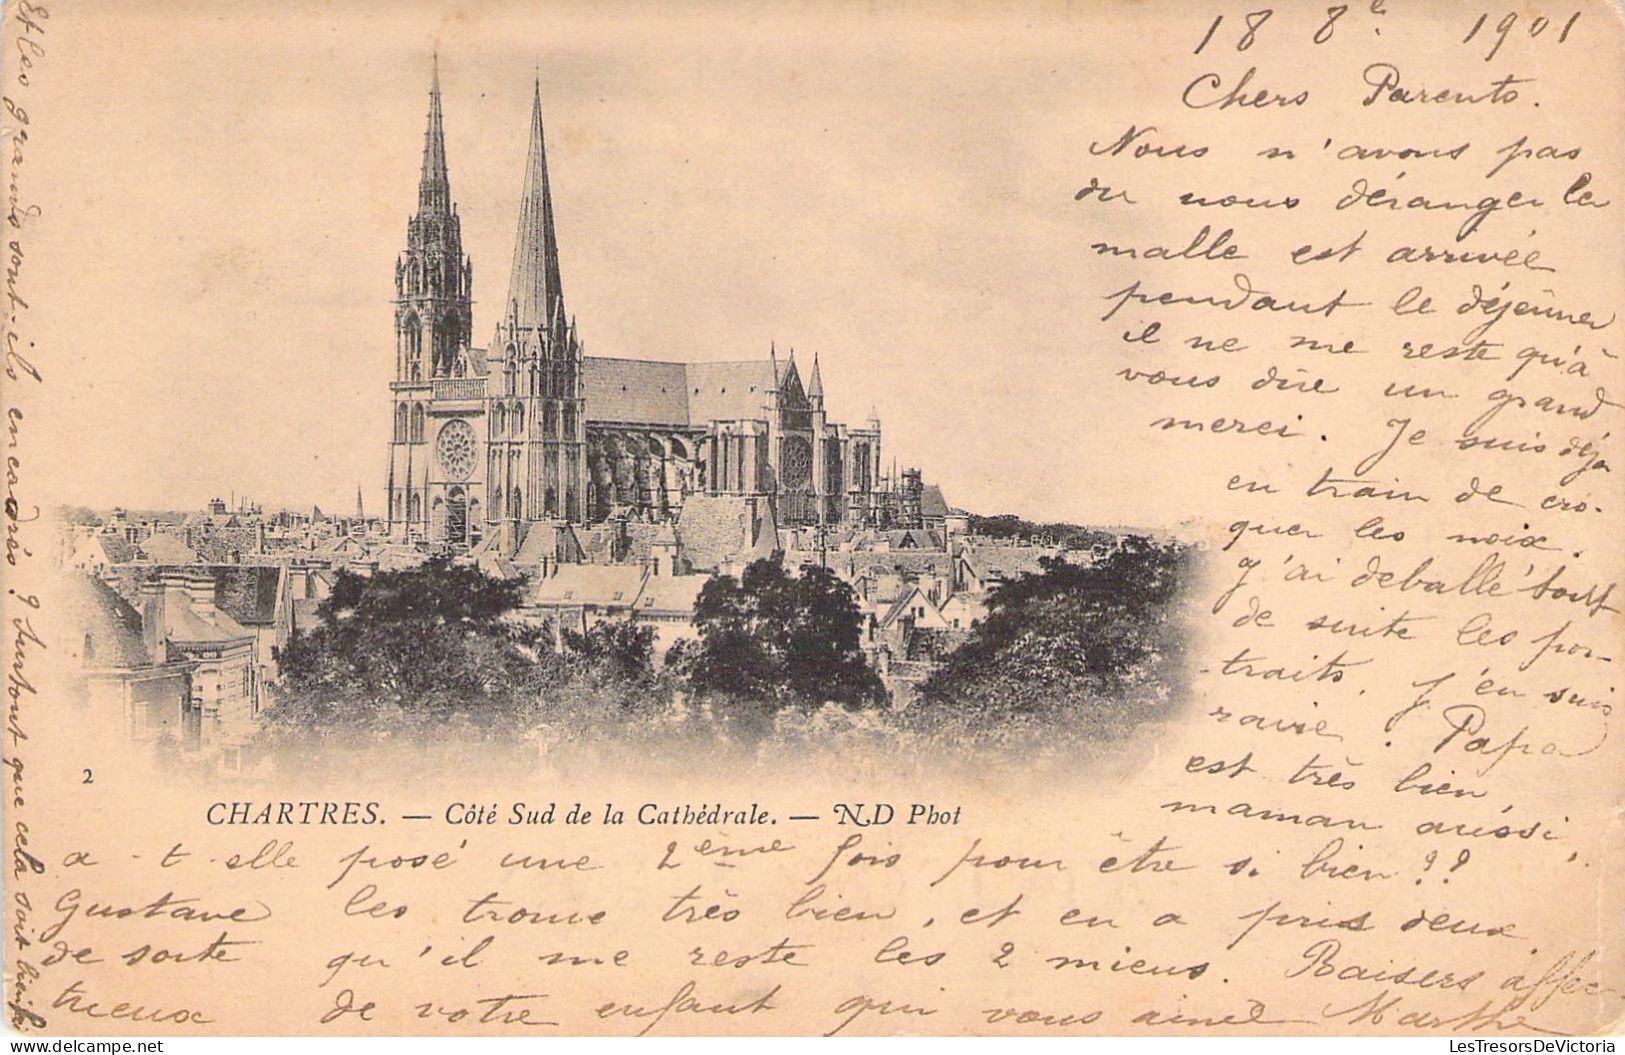 18 8e 1901
Chers Parents.
Nous n'avons pas
du nous déranger la
malle est arrivée
pendant le déjeûner
il ne me reste qu'à
vous dire un grand
merci. Je suis déja
en train de cro-
quer les noix.
J'ai deballé tout
de suite les por-
traits. J'en suis
ravie. Papa
est très bien,
maman aussi,
2
CHARTRES. — Côté Sud de la Cathédrale. — ND Phot
a-t-elle posé une 2ème fois pour être si bien??
Gustave les trouve très bien, et en a pris deux
de sorte qu'il me reste les 2 miens. Baisers affec-
tueux de votre enfant qui vous aime Marthe
Et les grands sont-ils encadrés? Surtout que cela soit bien fait
LesTresorsDeVictoria
www.delcampe.net